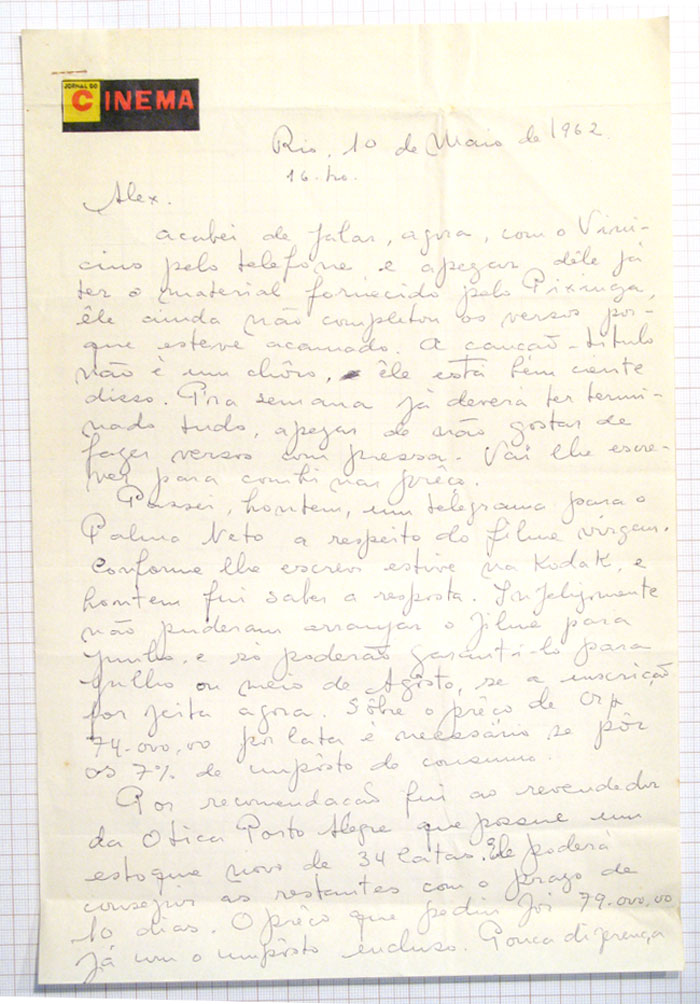 JORNAL DO
CINEMA
Rio, 10 de Maio de 1962.
16. hs.
Alex.
acabei de falar, agora, com o Vini-
cius pelo telefone, e apezar dêle já
ter o material fornecido pelo Pixinga,
êle ainda não completou os versos por-
que esteve acamado. A canção-titulo
não é um chôro, êle está bem ciente
disso. P'ra semana já deverá ter termi-
nado tudo, apezar de não gostar de
fazer versos com pressa. Vai lhe escre-
ver para combinar prêço.
Passei, hontem, um telegrama para o
Palma Neto a respeito do filme virgem.
Conforme lhe escrevi estive na Kodak, e
hontem fui saber a resposta. Infelizmente
não puderam arranjar o filme para
Junho, e só poderão garanti-lo para
Julho ou meio de Agôsto, se a inscrição
for feita agora. Sôbre o prêço de Cr$
74.000,00 por lata é necessário se pôr
os 7% de impôsto de consumo.
Por recomendação fui ao revendedor
da Otica Porto Alegre que possue um
estoque novo de 34 latas. Ele poderá
conseguir as restantes com o prazo de
10 dias. O prêço que pediu foi 79.000,00
já com o impôsto incluso. Pouca diferença